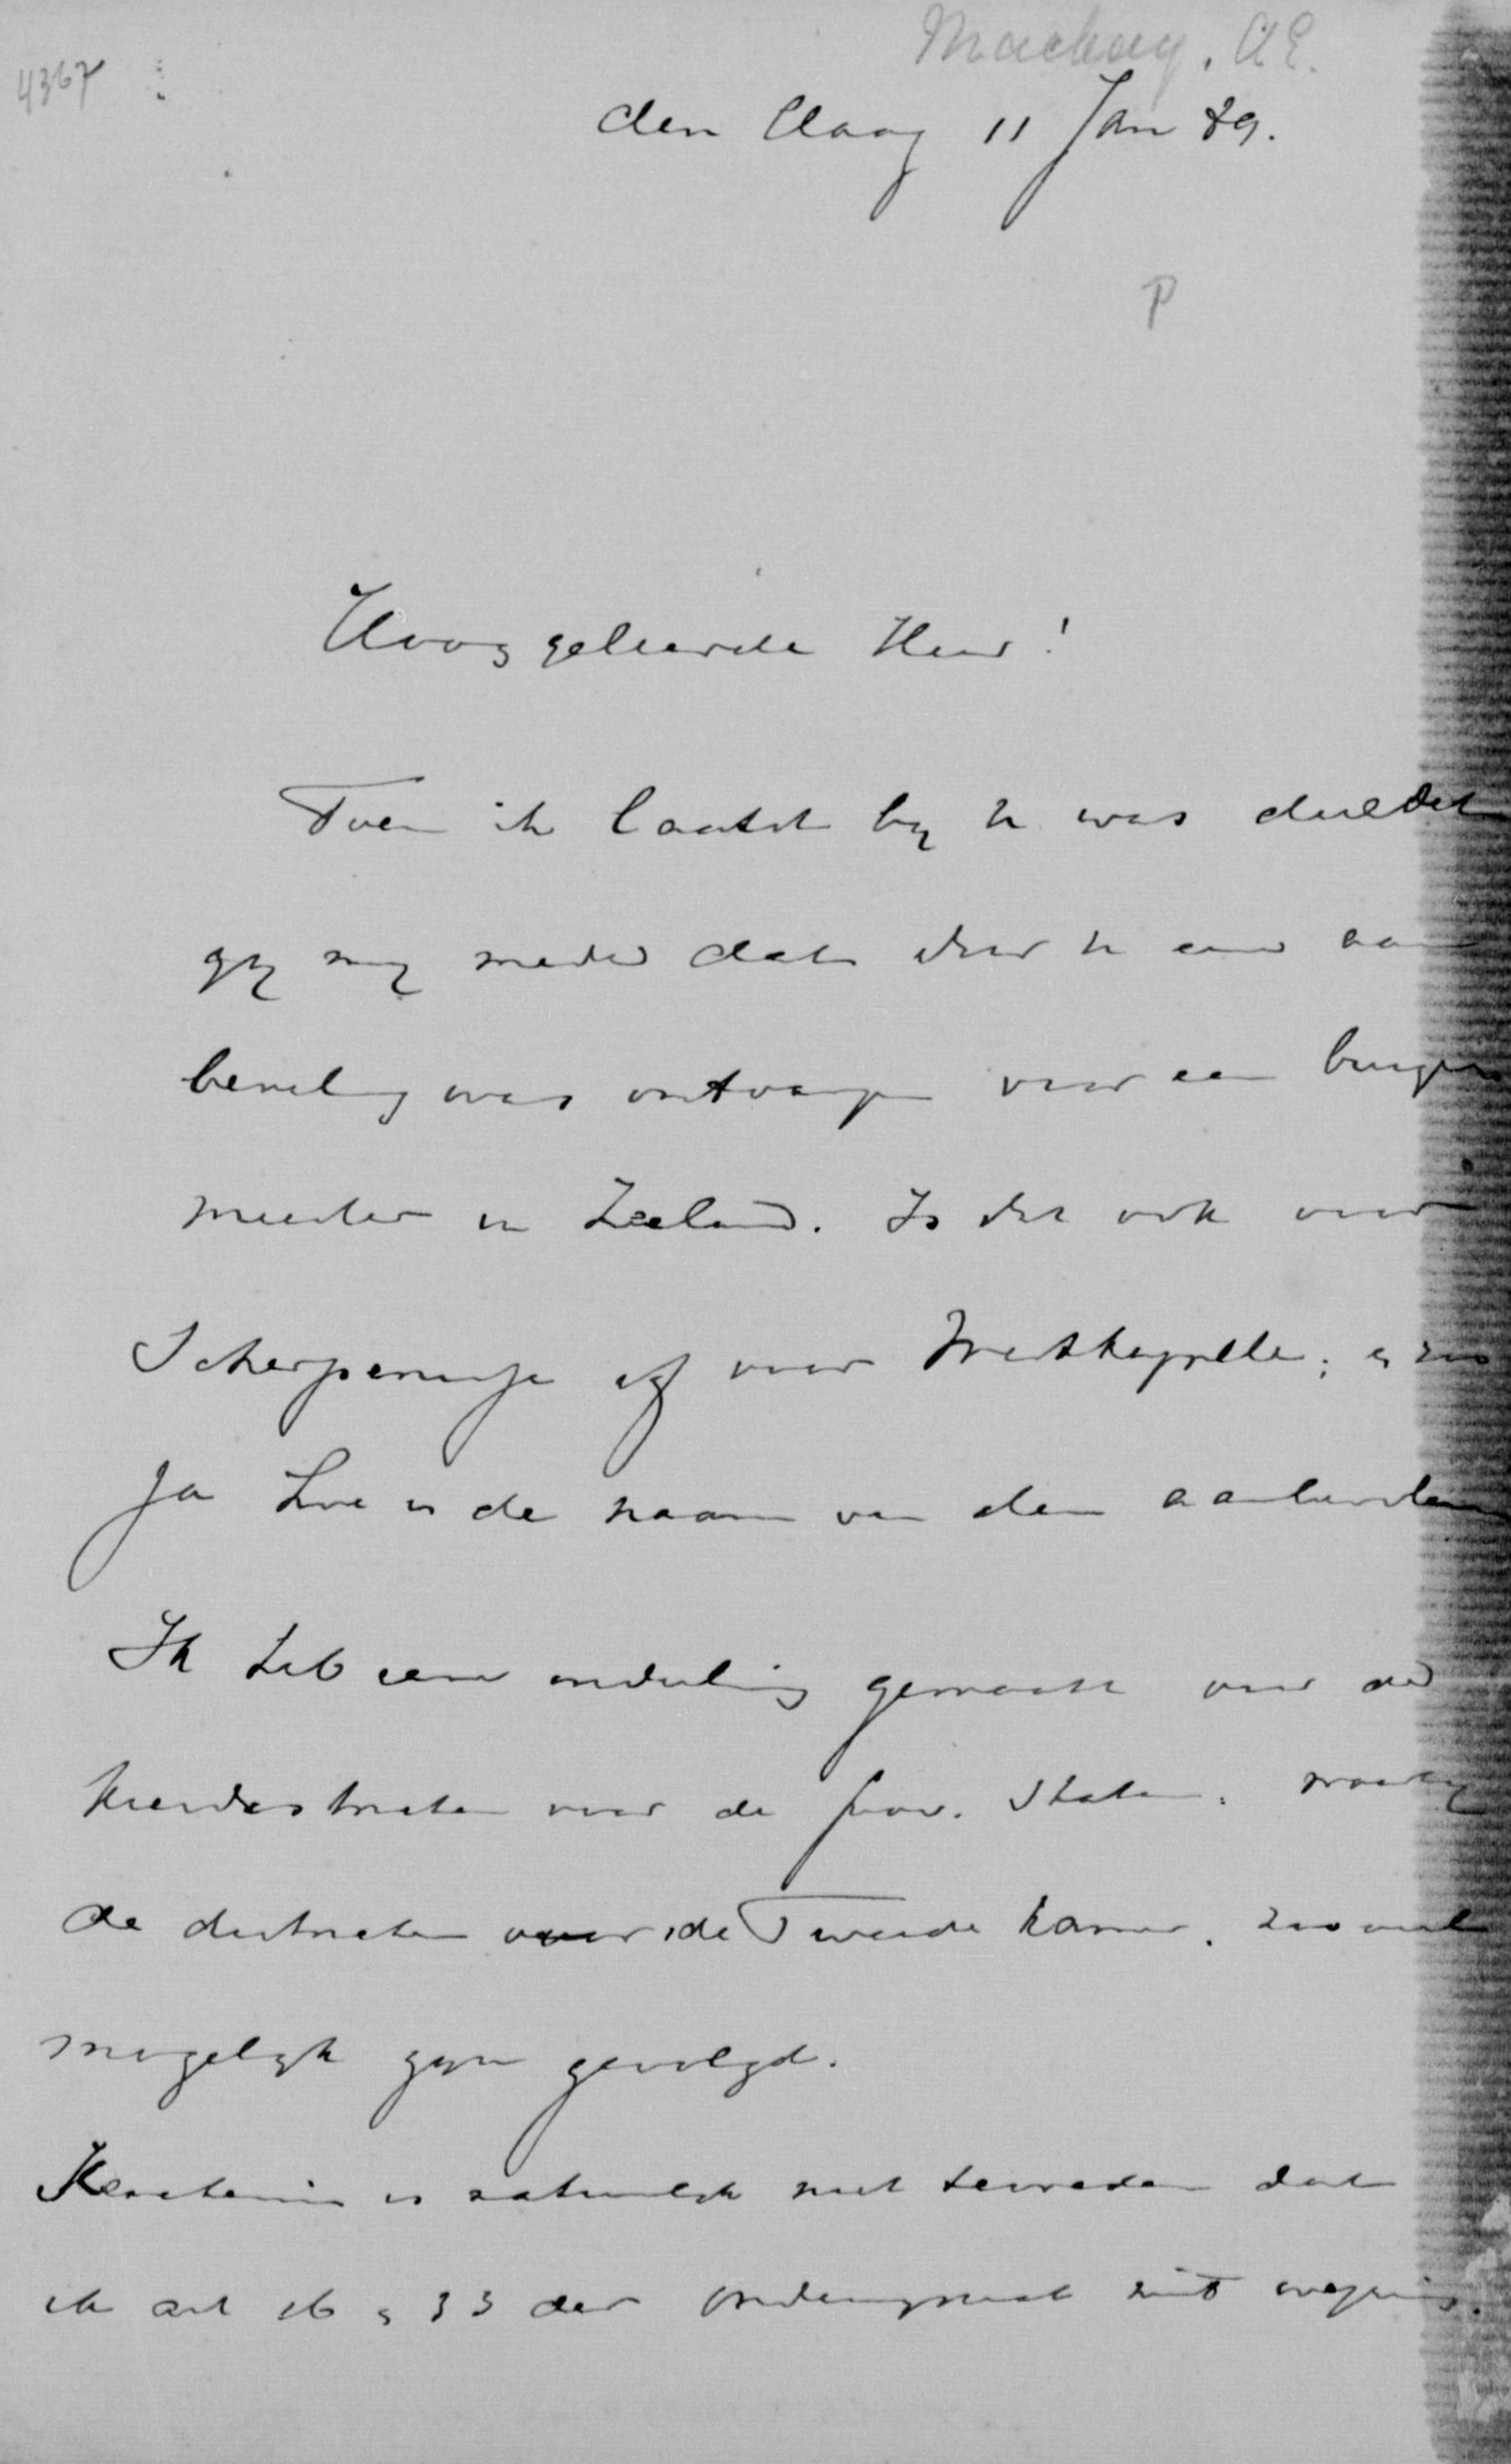 Mackay. AE.
4367
den Haag 11 Jan 89.
P
Hooggeleerde Heer!
Toen ik laatst by U was deeldet
gy my mede dat door U een aan
beveling was ontvangen voor een burge
meester in Zeeland. Is dat ook voor
Scherpenisse of voor Westkapelle; & zoo
Ja hoe is de naam van den aanbevolen
Ik heb eene indeeling gemaakt voor de
kiesdistricten voor de prov. Staten. waarbij
de districten voor de Tweede Kamer. zooveel
mogelyk zyn gevolgd.
is natuurlyk niet tevreden dat
ik art 16 & 33 der niet